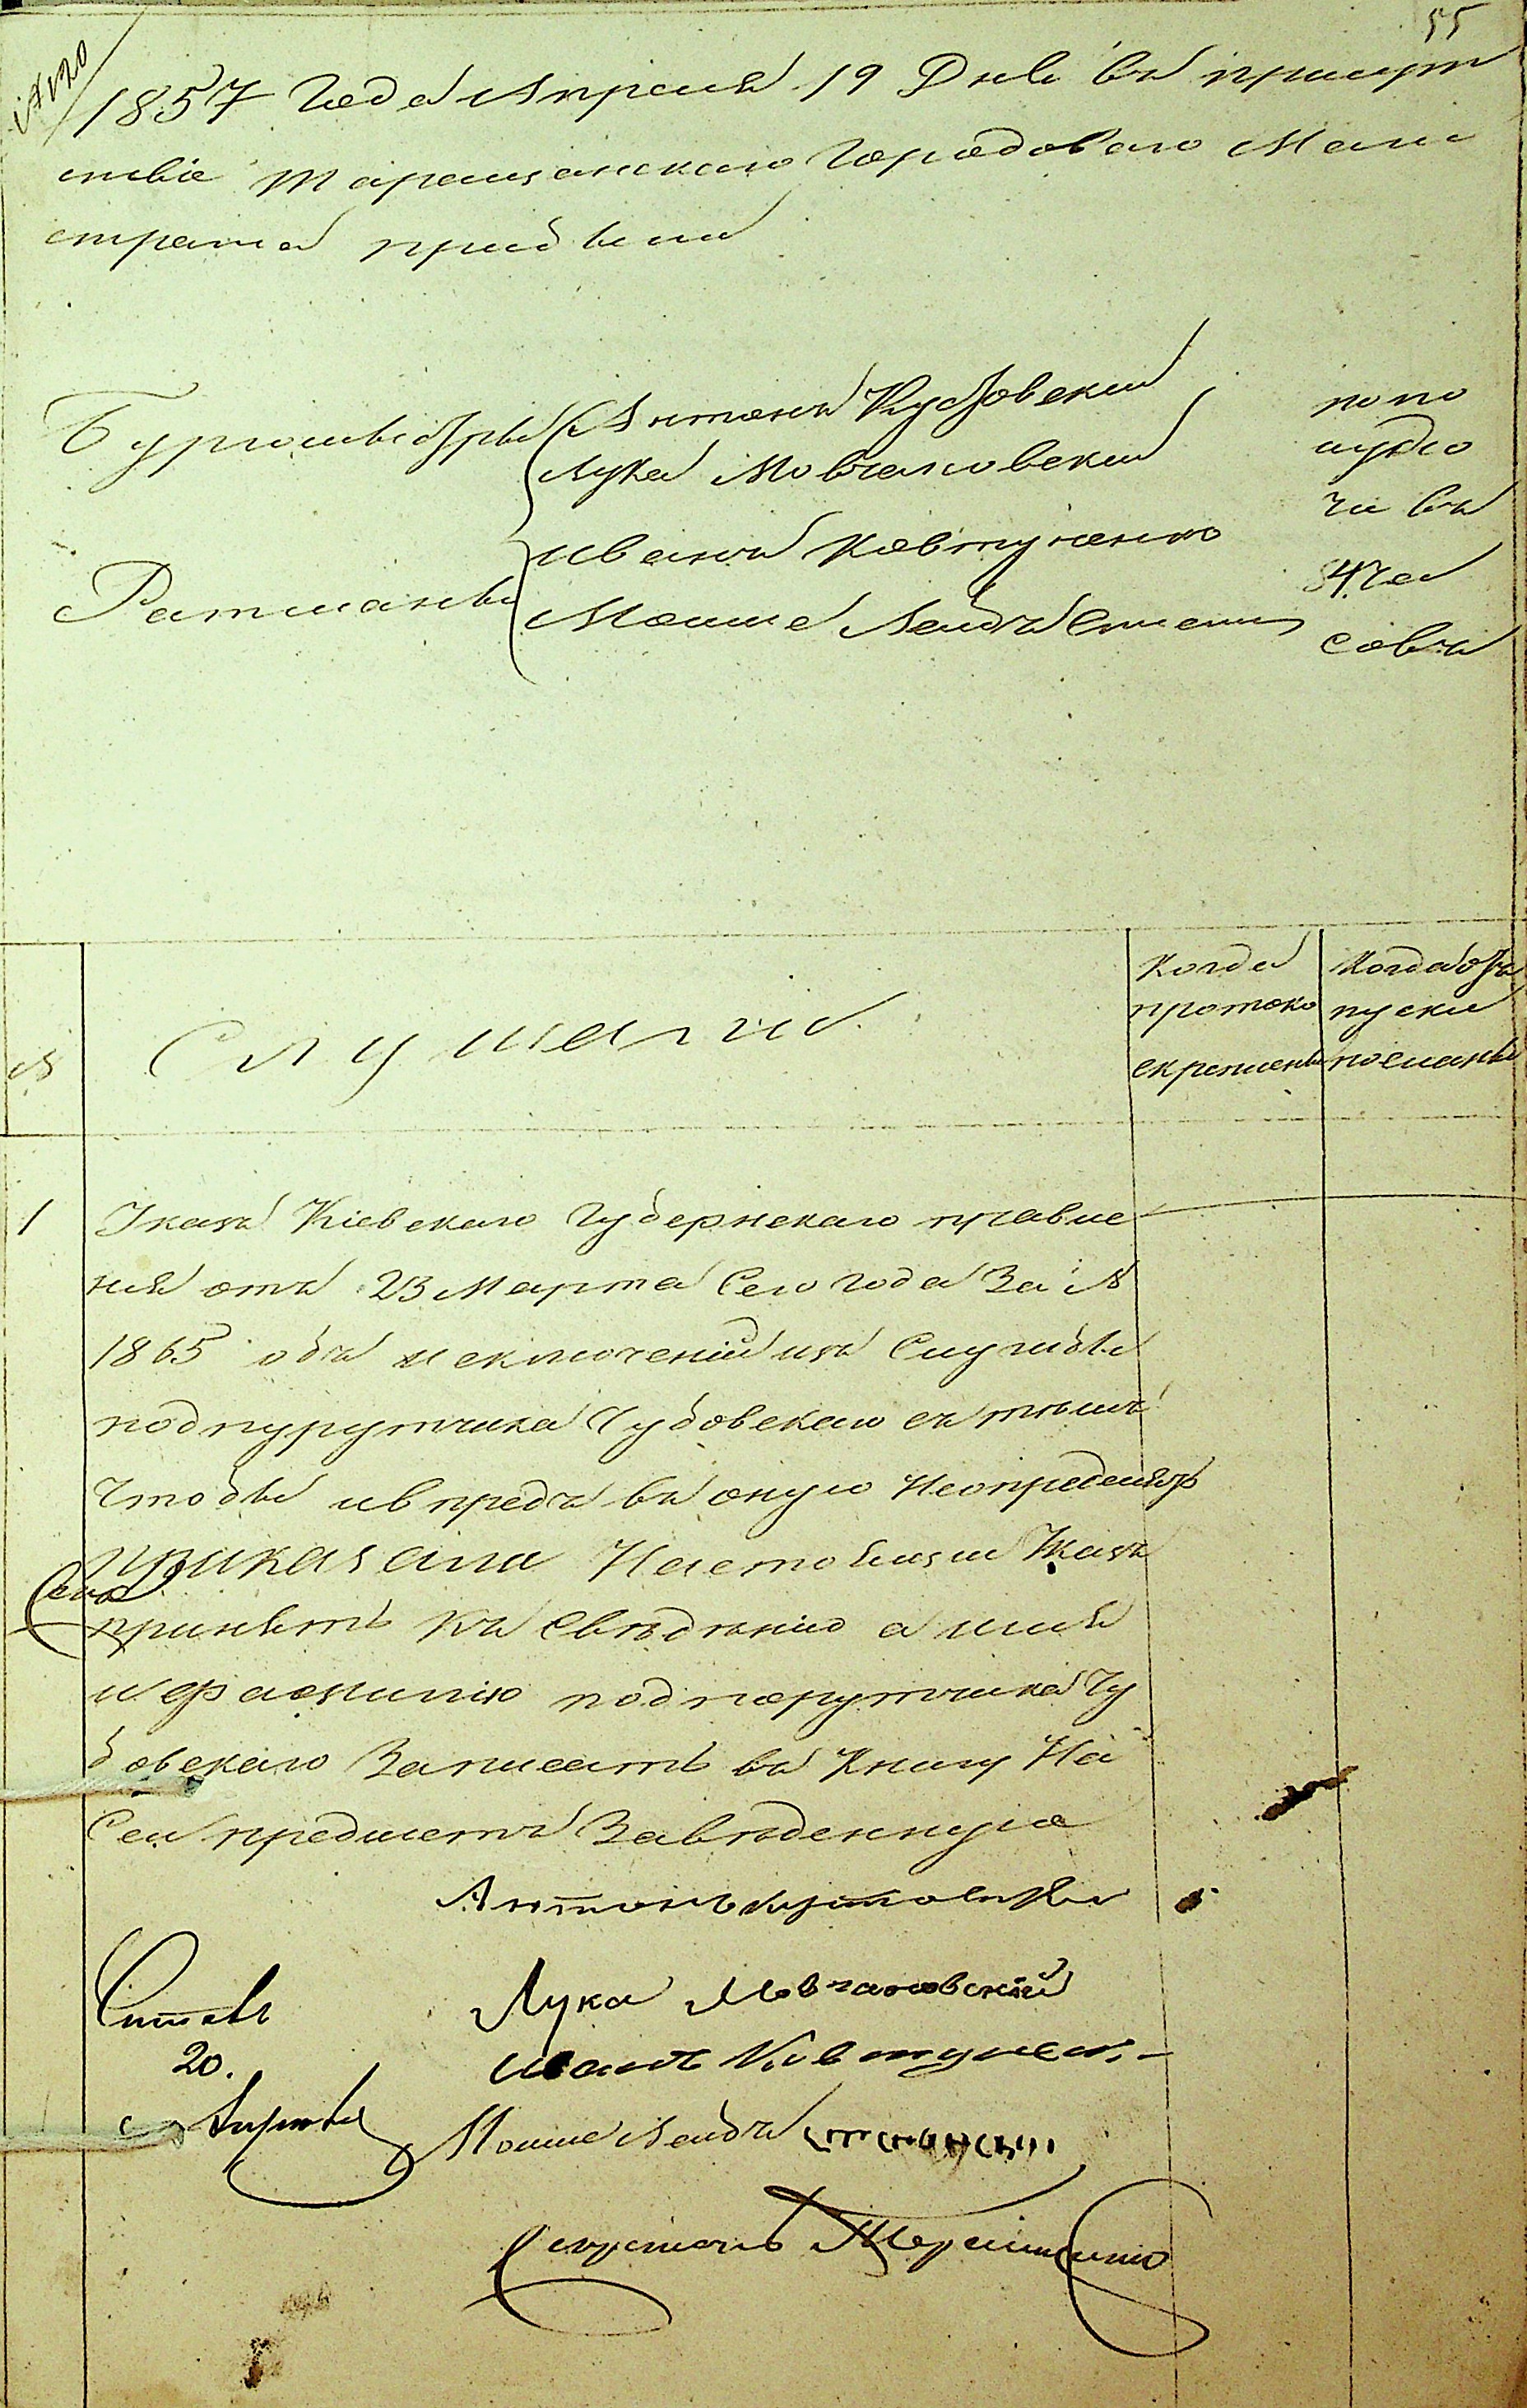 55
1857 Года Апреля 19 Дня въ присут
ствіе Таращанскаго Городоваго Маги
страта прибыли
Бургомистры
Антонъ Кутовский
Лука Мовчановский
Ратманы
Иванъ Ковтуненко
Мошко Лейбъ
по по
лудно
чи въ
4 ча
совъ
№
Слушали
Когда
протоко
скреплены
Когда от
пуски
посланы
1
Указъ Кіевскаго Губернскаго правле
нія отъ 23 Марта Сего года За №
1865 объ исключеніи изъ Службы
подпурутчика Чубовскаго съ темъ
Чтобы ивпредъ въ оную Неопределять
приказали Настоящи Указъ
принять Къ Сведѣнію а имя
и фамилію подпорутчика Чу
бовскаго Записать въ Книгу На
Сей предметъ Заведенную
Антонъ Кутовский
Лука Мовчановскій
Иванъ Ковтунен
20.
Апреля
Мошко Лейбъ
Секретарь